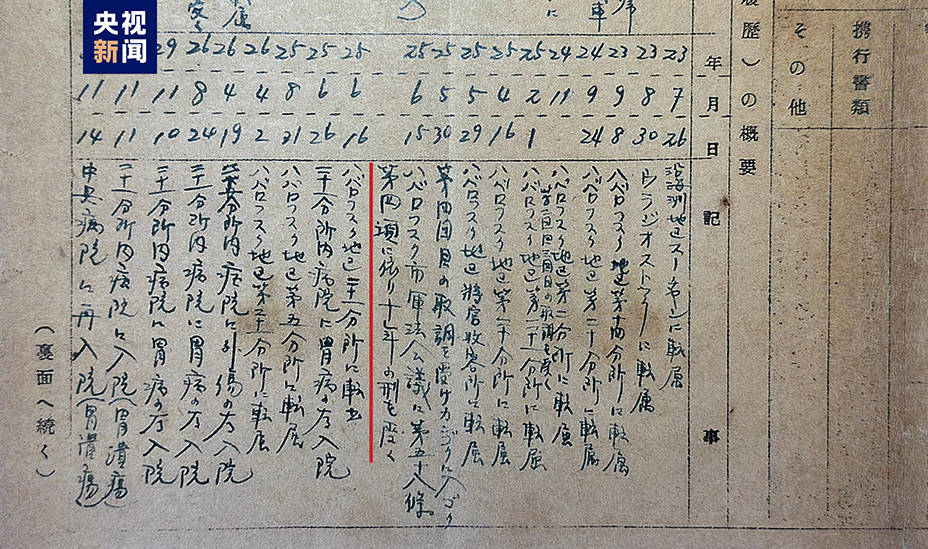 央视
新闻
携行書類
その他
歴）の概要
年月日 記事
23 7 26 沿海洲地区スーチャンに転属
23 8 30 ウラジオストックに転属
23 9 8 ハバロフスク地区第十四分所に転属
24 9 24 ハバロフスク地区第二十分所に転属
24 11 ハバロフスク地区第二分所に転属
第二回三回目の取調を受く
25 2 1 ハバロフスク地区第二十一分所に転属
25 4 16 ハバロフスク地区第二十分所に転属
25 5 29 ハバロフスク地区将官収容所に転属
25 5 30 第四回目の取調を受け に入ゴク
25 6 15 ハバロフスク市軍法会議に第五十八條
第四項に依り十年の刑を受く
25 6 16 ハバロフスク地区二十一分所に転出
25 6 26 二十一分所内病院に胃病の為入院
25 8 21 ハバロフスク地区第五分所に転属
26 4 2 ハバロフスク地区第二十一分所に転属
26 4 19 分所内病院に外傷の為入院
26 8 24 二十一分所内病院に胃病の為入院
29 11 10 二十一分所内病院に胃病の為入院
11 11 二十一分所内病院に入院(胃潰瘍)
11 14 中央病院に再入院(胃潰瘍)
（裏面へ続く）